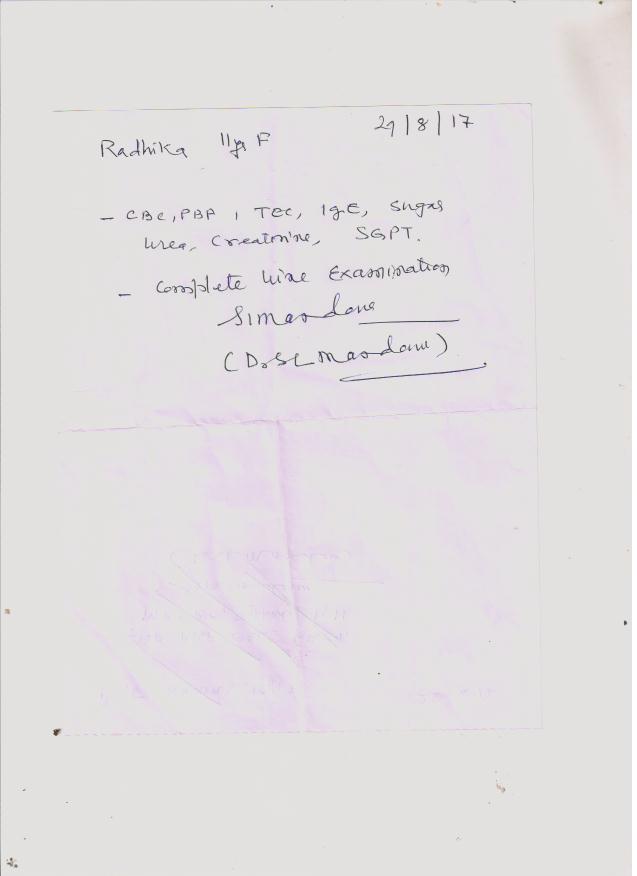 Radhika 11yr F 29/8/17
- CBC, PBP, TEC, IgE, Sugar
Urea, Creatinine, SGPT.
- Complete Urine Examination
(Dr SL